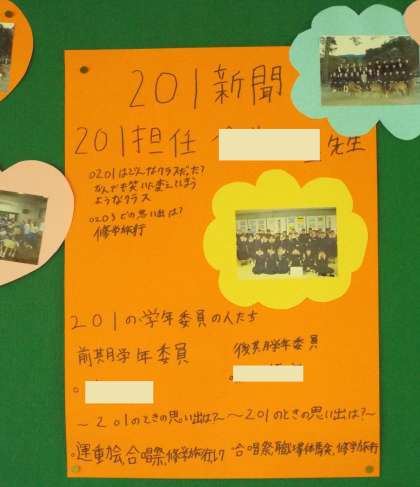 201新聞
201担任
先生
○201はどんなクラスだった?
なんでも笑いに変えてしまう
ようなクラス
○203での思い出は?
修学旅行
201の学年委員の人たち
前期学年委員
後期学年委員
～201のときの思い出は?～
～201のときの思い出は?～
○運動会、合唱祭、修学旅行
合唱祭、職場体験、修学旅行